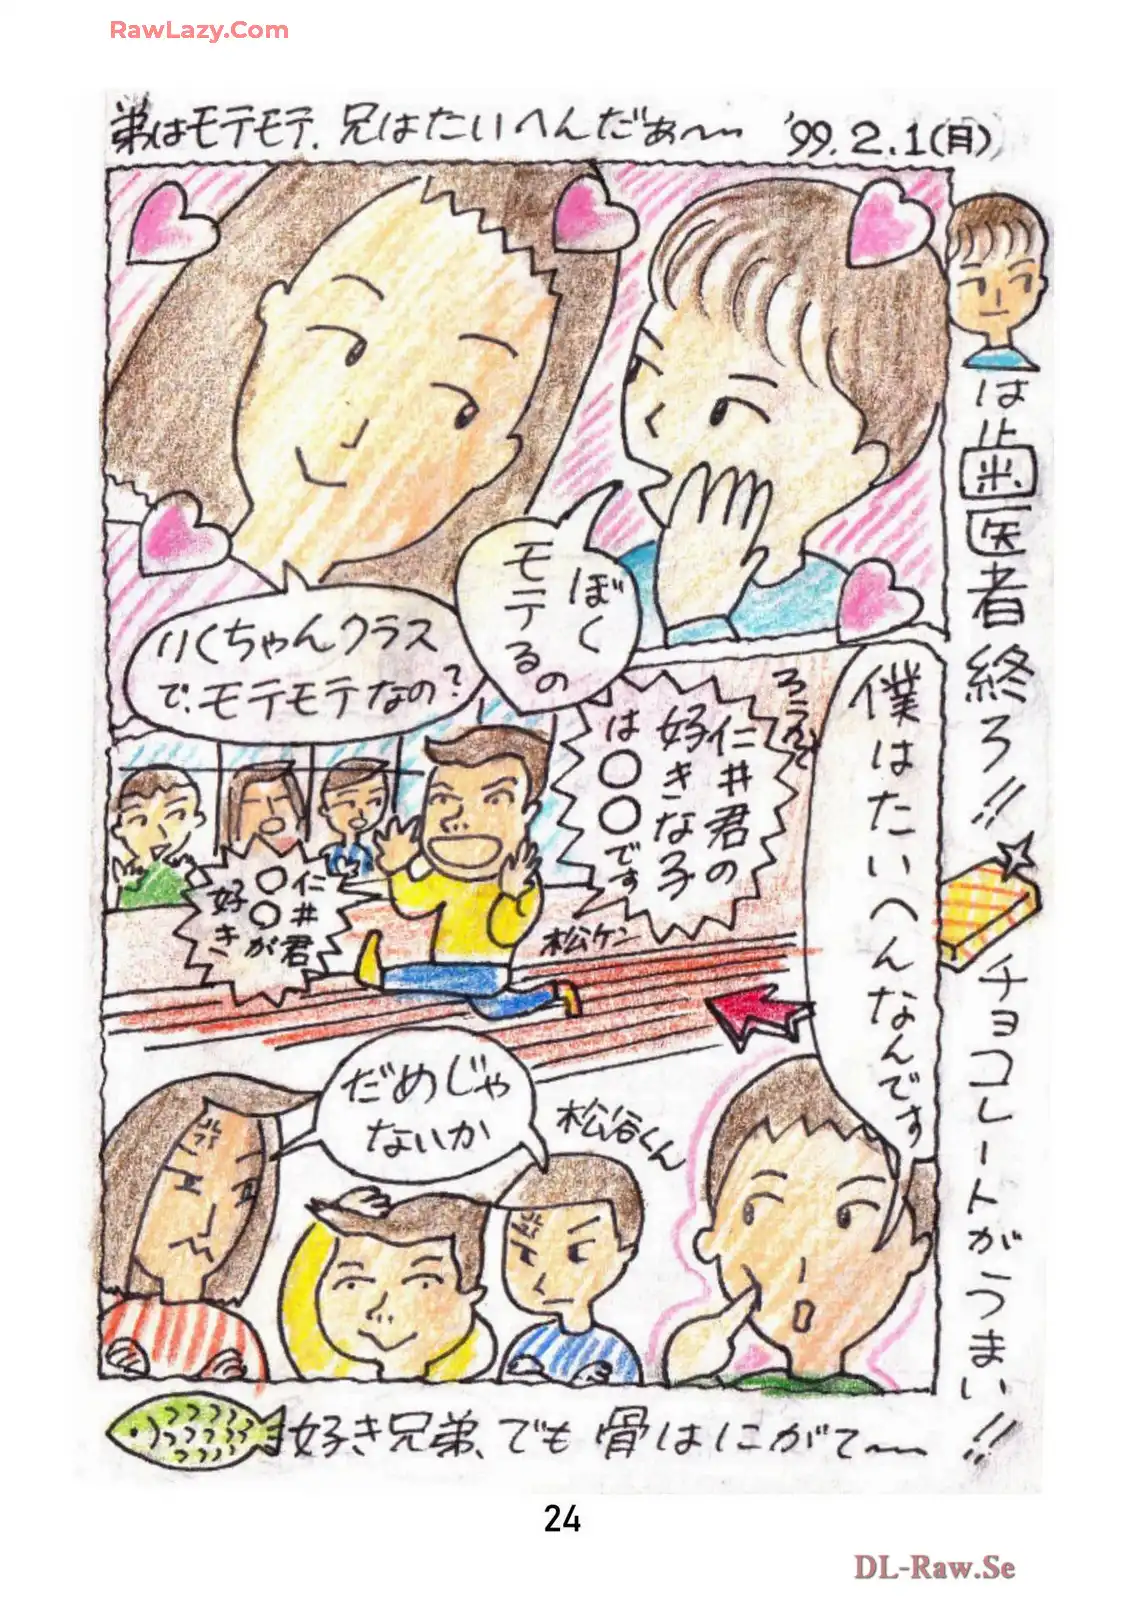 RawLazy.Com
弟はモテモテ、兄はたいへんだぁ〜 '99.2.1(月)
ぼく
モテるの
りくちゃんクラス
で、モテモテなの?
僕はたいへんなんです
仁井君の
好きな子
は○○です
仁井君
○○が
好き
松ケン
だめじゃ
ないか
松谷くん
は歯医者終ろ!!
チョコレートがうまい!!
好き兄弟、でも骨はにがて〜
24
DL-Raw.Se